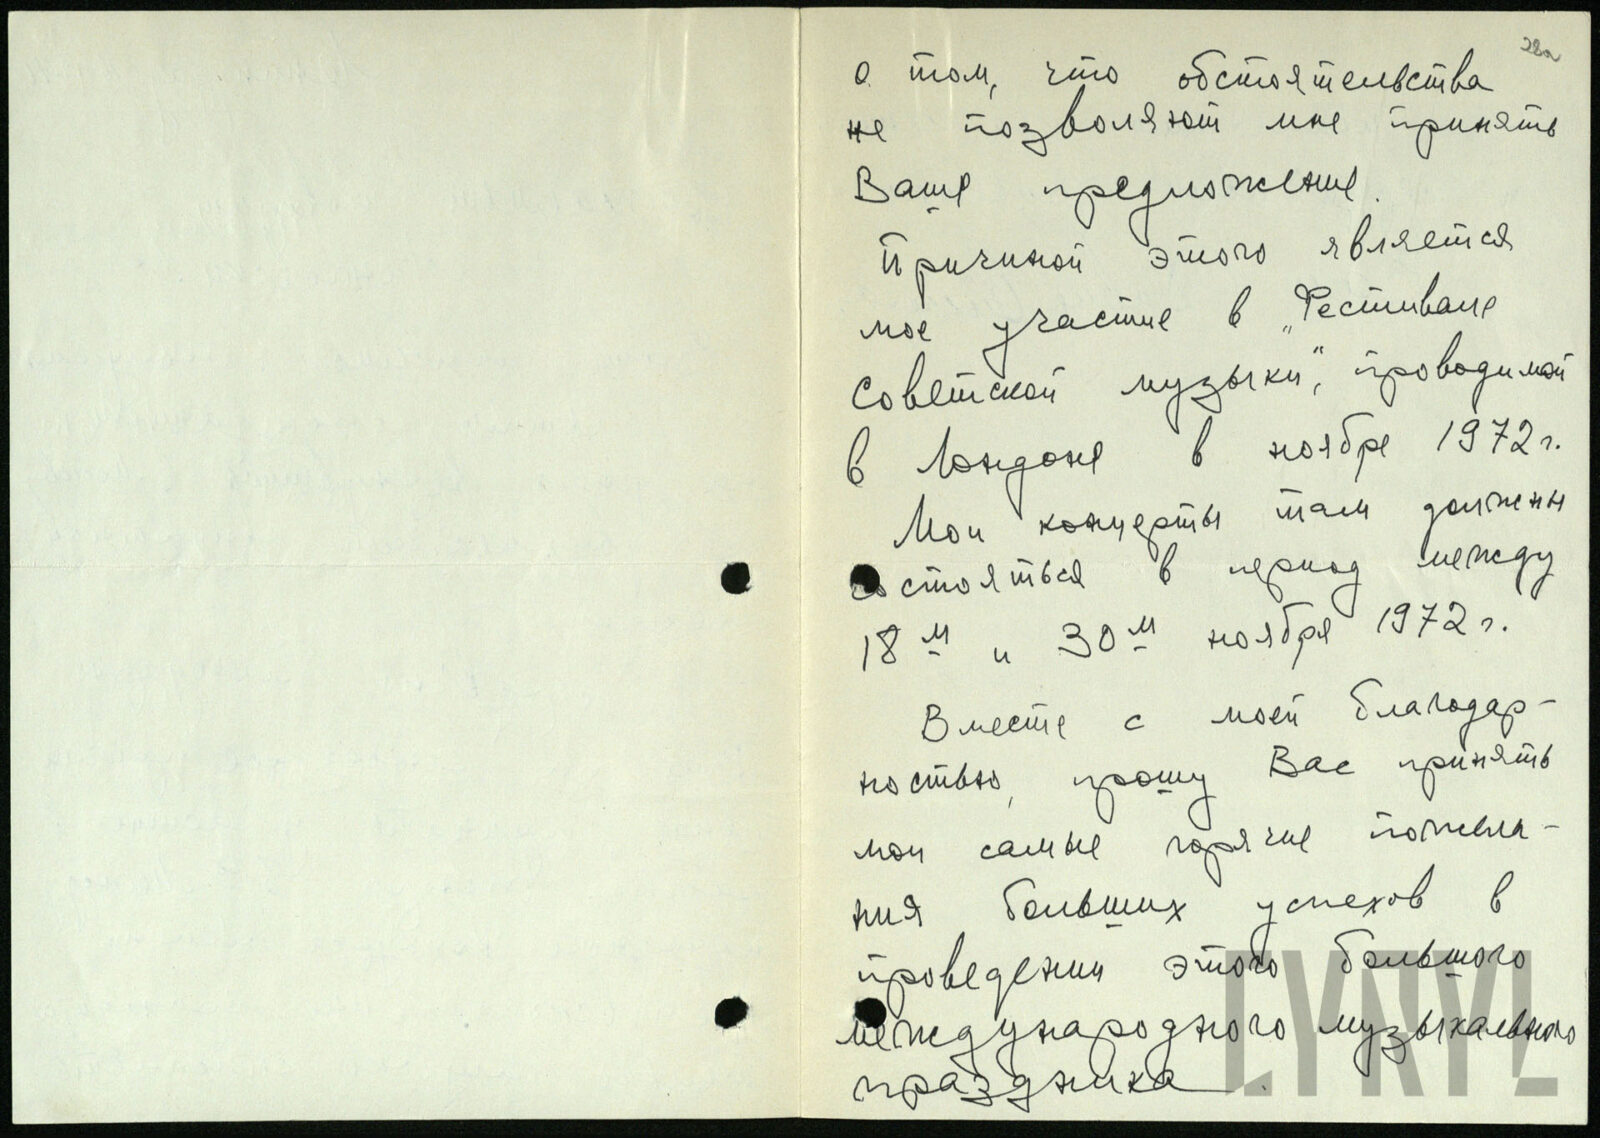 28а
о том, что обстоятельства
не позволяют мне принять
Ваше предложение.
Причиной этого является
мое участие в „Фестивале
Советской музыки", проводимой
в Лондоне в ноябре 1972 г.
Мои концерты там должны
состояться в период между
18 м и 30 м ноября 1972 г.
Вместе с моей благодар-
ностью, прошу Вас принять
мои самые горячие пожела-
ния больших успехов в
проведении этого большого
международного музыкального
праздника.
LYRYL